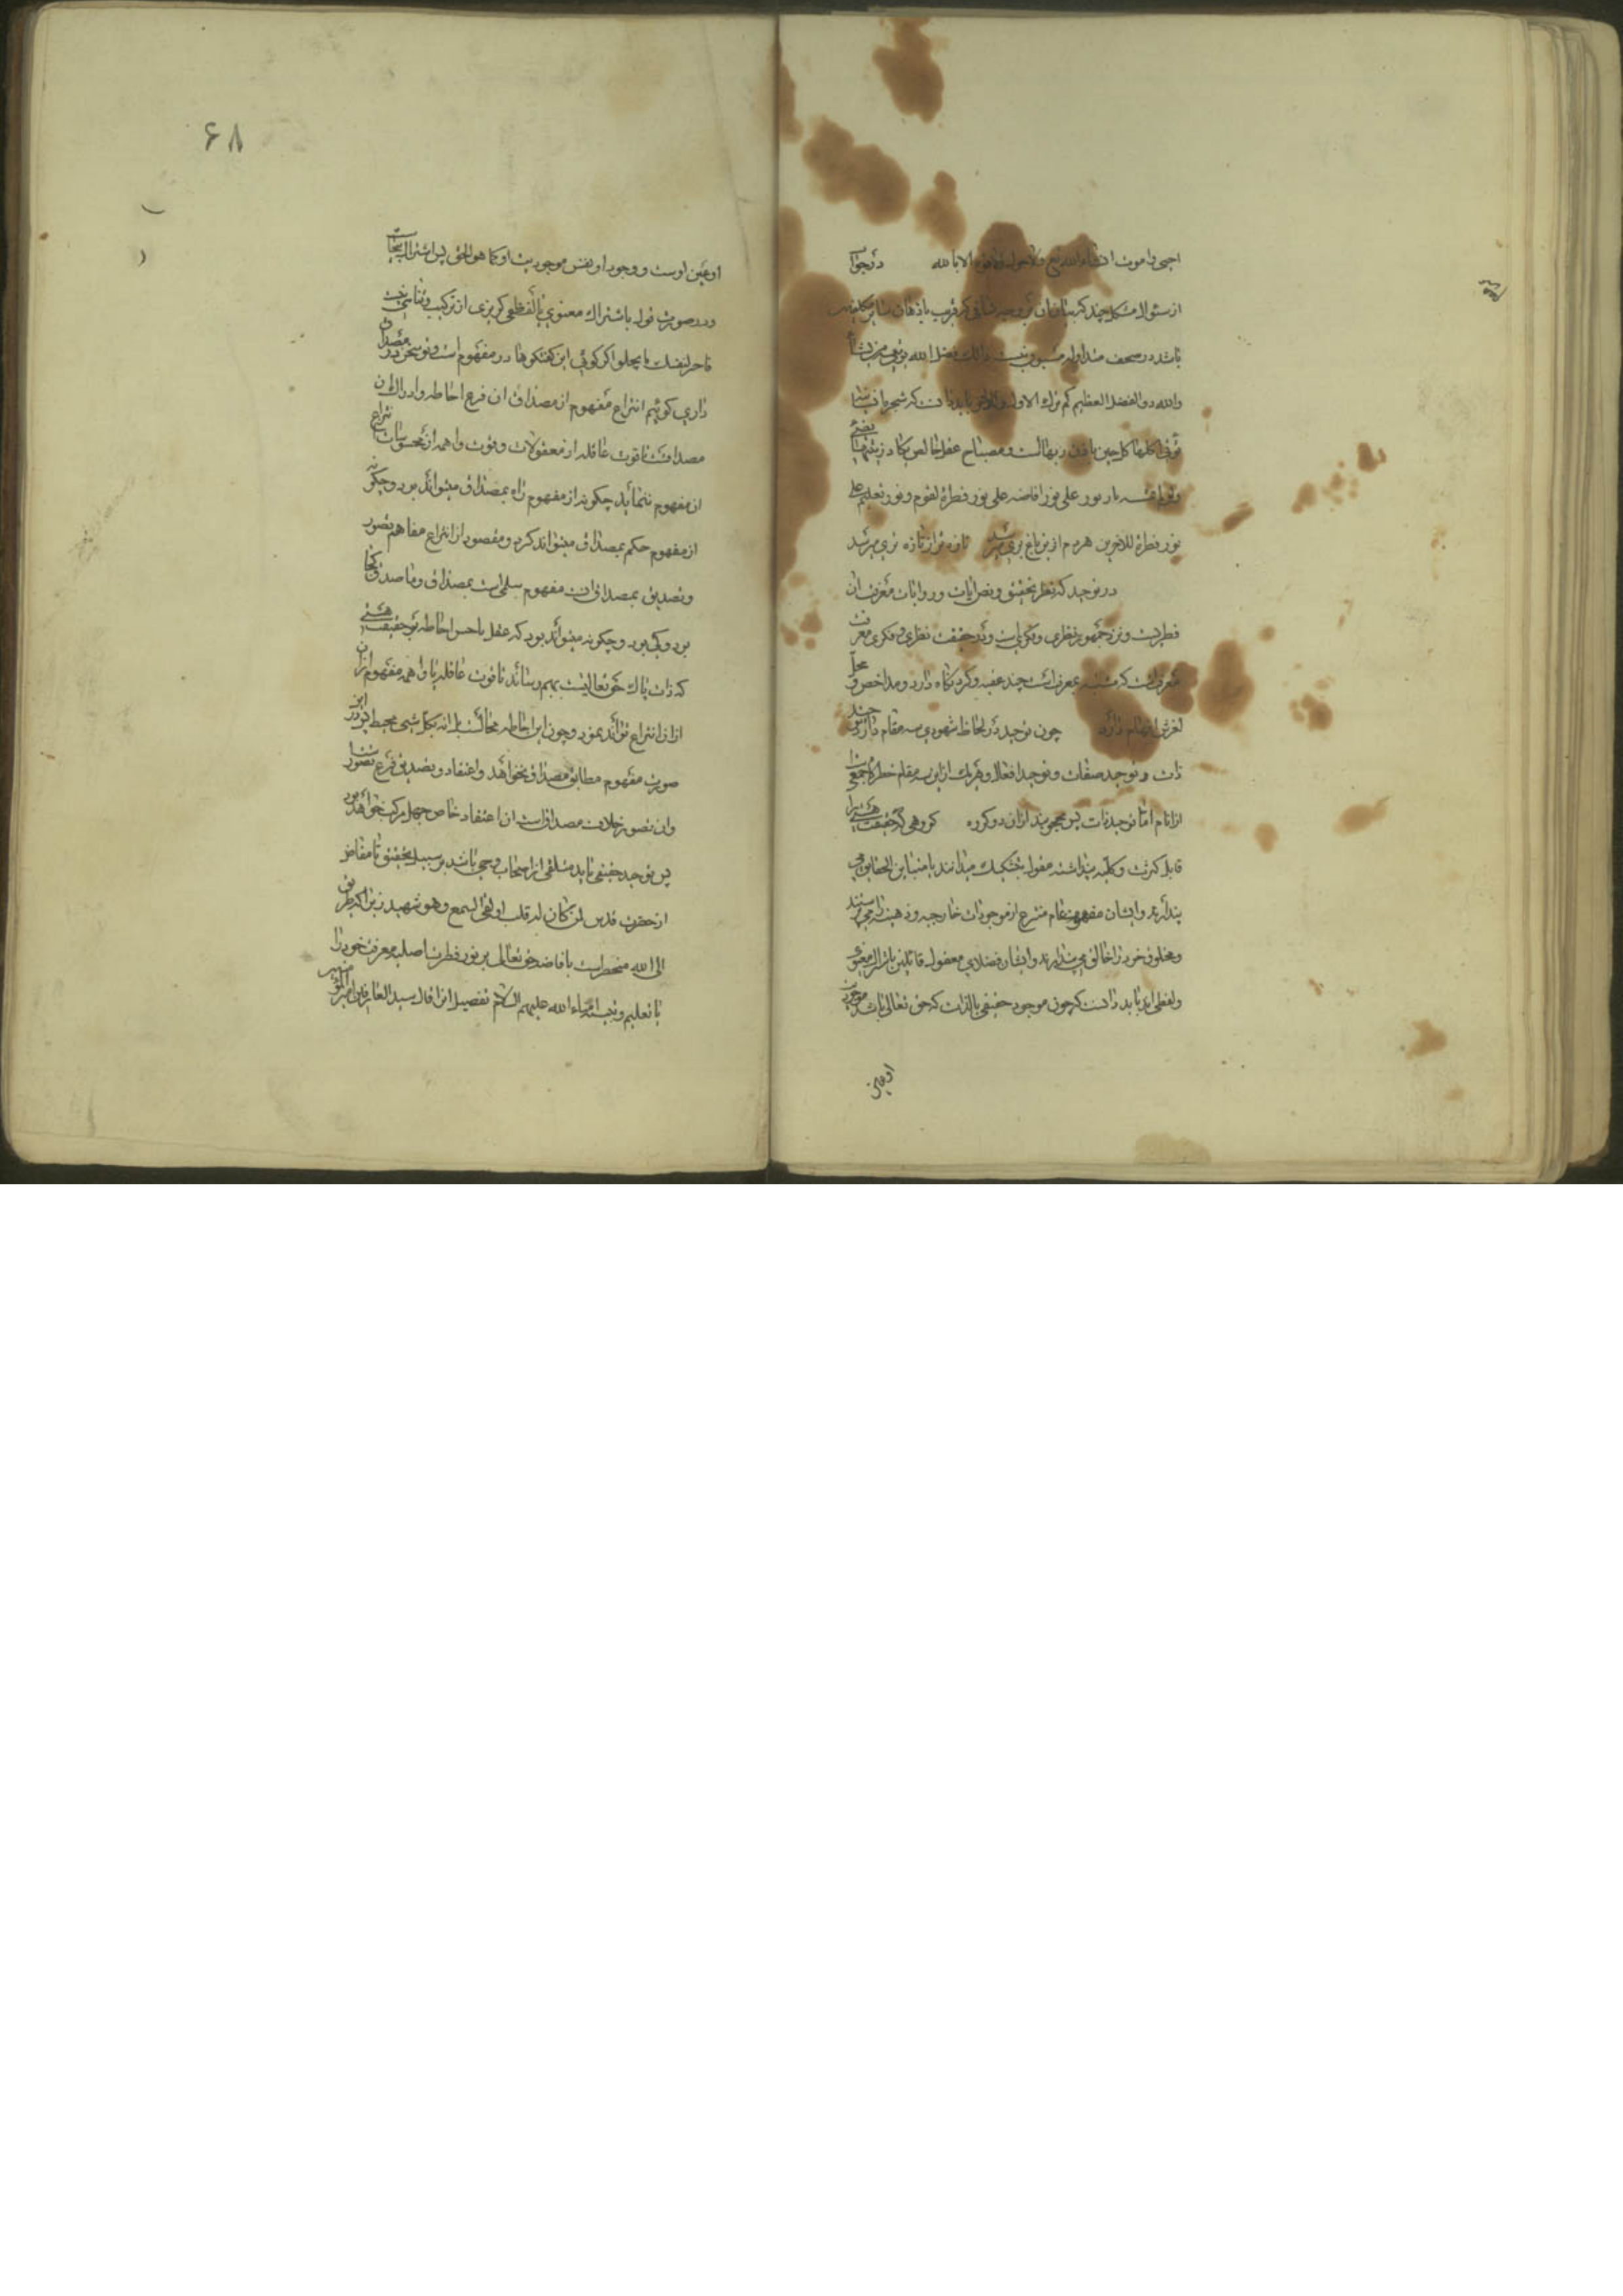 احیی و اموت ان شاء الله تع ولا حول ولا قوة الا بالله در جواب
از سئوال مشکل چند که بیان آن بر وجه شافی که قریب باذهان سایر مکلفین
باشد در صحف متداوله مسبوق نیست ذالک فضل الله یؤتیه من یشاء
والله ذو الفضل العظیم کم ترك الاول للاخر باید دانست که شجره
تؤتی اکلها کل حین باذن ربها است و مصباح عقل خالص یکاد زیتها یضئ
ولو لم تمسسه نار نور علی نور افاضه علی نور فطرة لقوم و نور تعلیم علی
نور فطرة للاخرین هر دم از این باغ بری میرسد تازه تر از تازه تری میرسد
در توحید که بنظر تحقیق و نص ایات و روایات معرفت ان
فطریست و نزد جمهور نظری و فکری است و در حقیقت نظری و فکری معرفت
معرفتی است که مشتبه بمعرفت است چند عقبه و کریوه دارد و مداحض و محل
لغزش افهام دارد چون توحید در لحاظ شهودی سه مقام دارد توحید
ذات و توحید صفات و توحید افعال و هر یک از این سه مقام خطرگاه جمعی است
از انام اما توحید ذات پس محجوبند از ان دو کروه کروهی که حقیقت هستی را
قابل کثرت و کلیه پنداشته مقول بتشکیک میدانند یا متباین الحقایق می
پندارند و ایشان مفهوم عام منتزع از موجودات خارجیه و ذهنیه را می پرستند
و مخلوق خود را خالق می پندارند و ایشان فضلای معقول قائلین باشتراك معنوی
و لفظی اند باید دانست که چون موجود حقیقی بالذات که حق تعالی باشد موجودیت
او عین
۶۸
او عین اوست و وجود او نفس موجودیت او کما هو الحق پس اشتراك بیجاست
و در صورت قول باشتراك معنوی یا لفظی کریزی از ترکیب و تناهی نیست
فاختر لنفسك ما یحلو اکر کوئی این کفتکوها در مفهوم است و تو سخن در مصداق
داری کوئیم انتزاع مفهوم از مصداق ان فرع احاطه و ادراك ان
مصداقست تا قوت عاقله از معقولات و قوت واهمه از محسوسات انتزاع
ان مفهوم ننماید چکونه از مفهوم راه بمصداق میتواند برد و چکونه
از مفهوم حکم بمصداق میتواند کرد و مقصود از انتزاع مفاهیم تصور
و تصدیق بمصداق ان مفهوم سلمی است بمصداق و ما صدق کجا
برد و کی برد و چکونه میتواند بود که عقل یا حس احاطه بر حقیقت هستی
که ذات پاك حق تعالیست بهم رساند تا قوت عاقله یا واهمه مفهوم ازان
ازان انتزاع تواند نمود و چون این احاطه محالست بل انه بکل شیء محیط پس در این
صورت مفهوم مطابق مصداق نخواهد و اعتقاد و تصدیق فرع تصور است
وان تصور خلاف مصداق است ان اعتقاد خاص جهل مرکب خواهد بود
پس توحید حقیقی باید متلقی از اصحاب وحی باشد بر سبیل تحقیق تا مفاض
از حضرت قدس لمن كان له قلب او القی السمع و هو شهید زیرا که طریق
الی الله منحصر است بافاضه حق تعالی بر نور فطرت اصلیه معرفت خود را
یا تعلیم و تنبیه انبیاء الله علیهم السلام تفصیل این اقال سید العارفین امیر المؤمنین